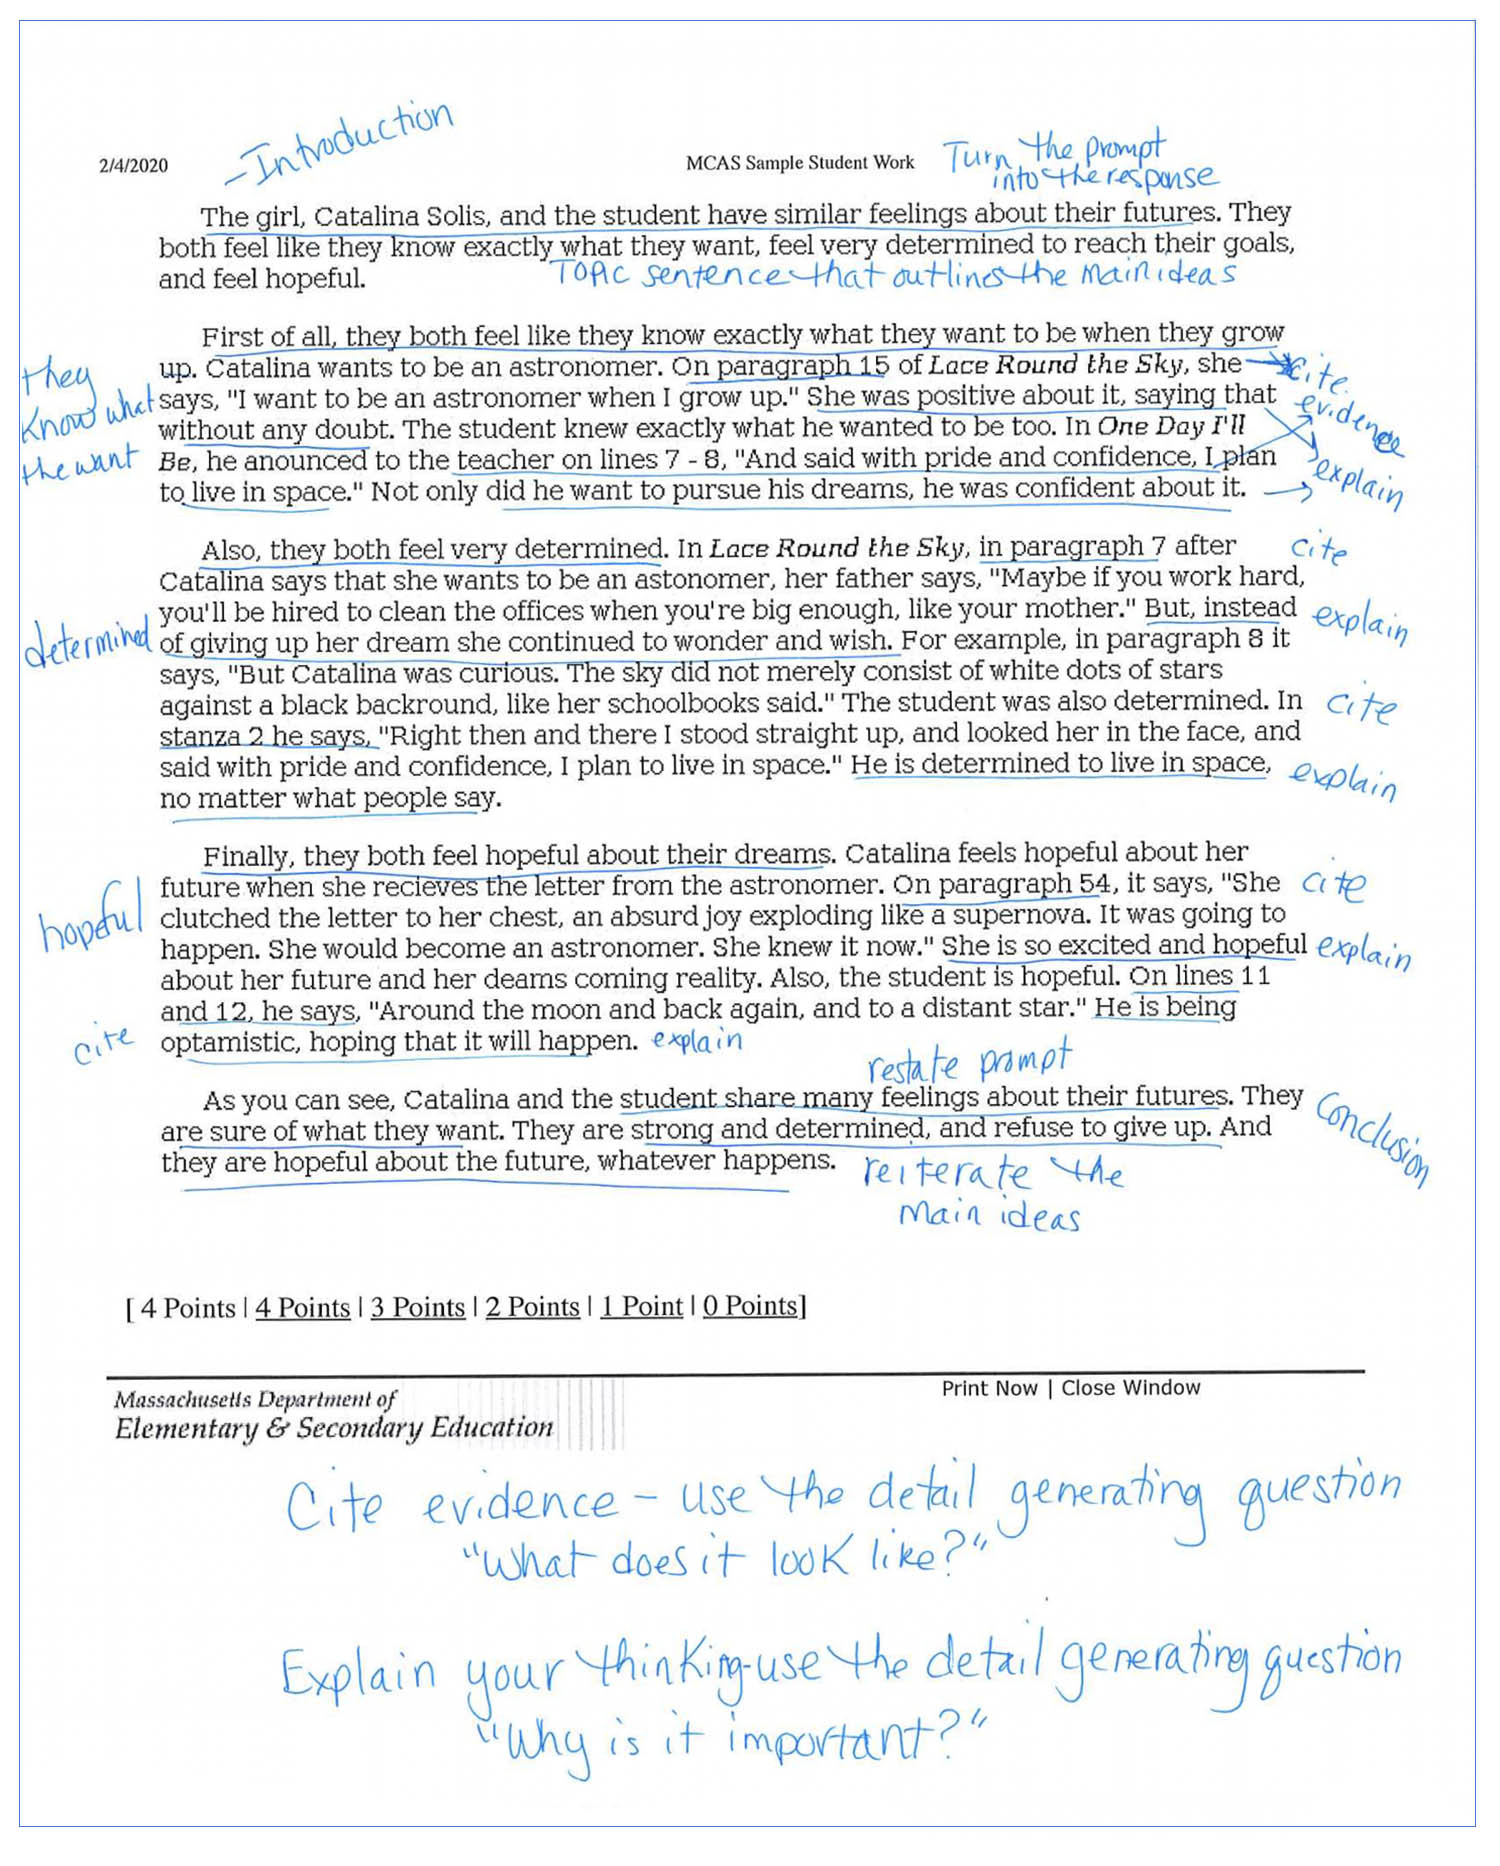 - Introduction
2/4/2020
MCAS Sample Student Work
Turn the prompt
into the response
The girl, Catalina Solis, and the student have similar feelings about their futures. They
both feel like they know exactly what they want, feel very determined to reach their goals,
and feel hopeful.
Topic sentence that outlines the main ideas
First of all, they both feel like they know exactly what they want to be when they grow
up. Catalina wants to be an astronomer. On paragraph 15 of Lace Round the Sky, she
says, "I want to be an astronomer when I grow up." She was positive about it, saying that
without any doubt. The student knew exactly what he wanted to be too. In One Day I'll
Be, he anounced to the teacher on lines 7 - 8, "And said with pride and confidence, I plan
to live in space." Not only did he want to pursue his dreams, he was confident about it.
they
know what
the want
cite
evidence
explain
Also, they both feel very determined. In Lace Round the Sky, in paragraph 7 after
cite
Catalina says that she wants to be an astonomer, her father says, "Maybe if you work hard,
you'll be hired to clean the offices when you're big enough, like your mother." But, instead
explain
determined
of giving up her dream she continued to wonder and wish. For example, in paragraph 8 it
says, "But Catalina was curious. The sky did not merely consist of white dots of stars
against a black backround, like her schoolbooks said." The student was also determined. In
cite
stanza 2 he says, "Right then and there I stood straight up, and looked her in the face, and
said with pride and confidence, I plan to live in space." He is determined to live in space,
explain
no matter what people say.
Finally, they both feel hopeful about their dreams. Catalina feels hopeful about her
future when she recieves the letter from the astronomer. On paragraph 54, it says, "She
cite
hopeful
clutched the letter to her chest, an absurd joy exploding like a supernova. It was going to
happen. She would become an astronomer. She knew it now." She is so excited and hopeful
explain
about her future and her deams coming reality. Also, the student is hopeful. On lines 11
and 12, he says, "Around the moon and back again, and to a distant star." He is being
cite
optamistic, hoping that it will happen.
explain
restate prompt
As you can see, Catalina and the student share many feelings about their futures. They
are sure of what they want. They are strong and determined, and refuse to give up. And
they are hopeful about the future, whatever happens.
Conclusion
reiterate the
main ideas
[ 4 Points | 4 Points | 3 Points | 2 Points | 1 Point | 0 Points]
Massachusetts Department of
Elementary & Secondary Education
Print Now | Close Window
Cite evidence - use the detail generating question
"What does it look like?"
Explain your thinking-use the detail generating question
"Why is it important?"